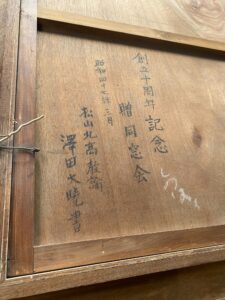 創立十周年記念
贈同窓会
昭和四十七年三月
松山北高教諭
澤田大暁書